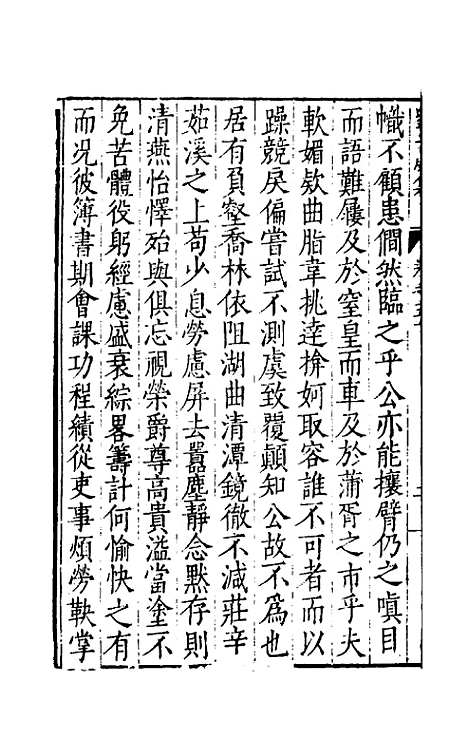 幟不顧患僩然臨之乎公亦能攘臂仍之嗔目
而語難屨及於窒皇而車及於蒲胥之市乎夫
軟媚欵曲脂韋挑達揜妸取容誰不可者而以
躁競戾偏嘗試不測虞致覆顛知公故不爲也
居有負壑喬林依阻湖曲清潭鏡徹不減莊辛
茹溪之上苟少息勞慮屏去囂塵靜念默存則
清燕怡懌殆與俱忘視榮爵尊高貴溢當塗不
免苦體役躬經慮盛衰綜畧籌計何愉快之有
而况彼簿書期會課功程績從吏事煩勞鞅掌